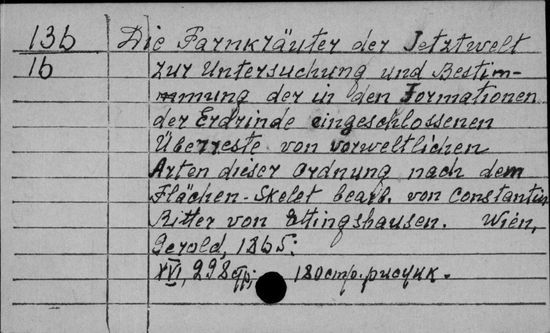 13b Die Farnkräuter der Jetztwelt
1b zur Untersuchung und Bestim-
mmung der in den Formationen
der Erdrinde eingeschlossenen
Überreste von vorweltlichen
Arten dieser Ordnung nach dem
Flächen-Skelet bearb. von Constantin
Ritter von Ettingshausen. Wien,
Gerold, 1865.
XVI, 298 pp; 180 стр. рисунк.